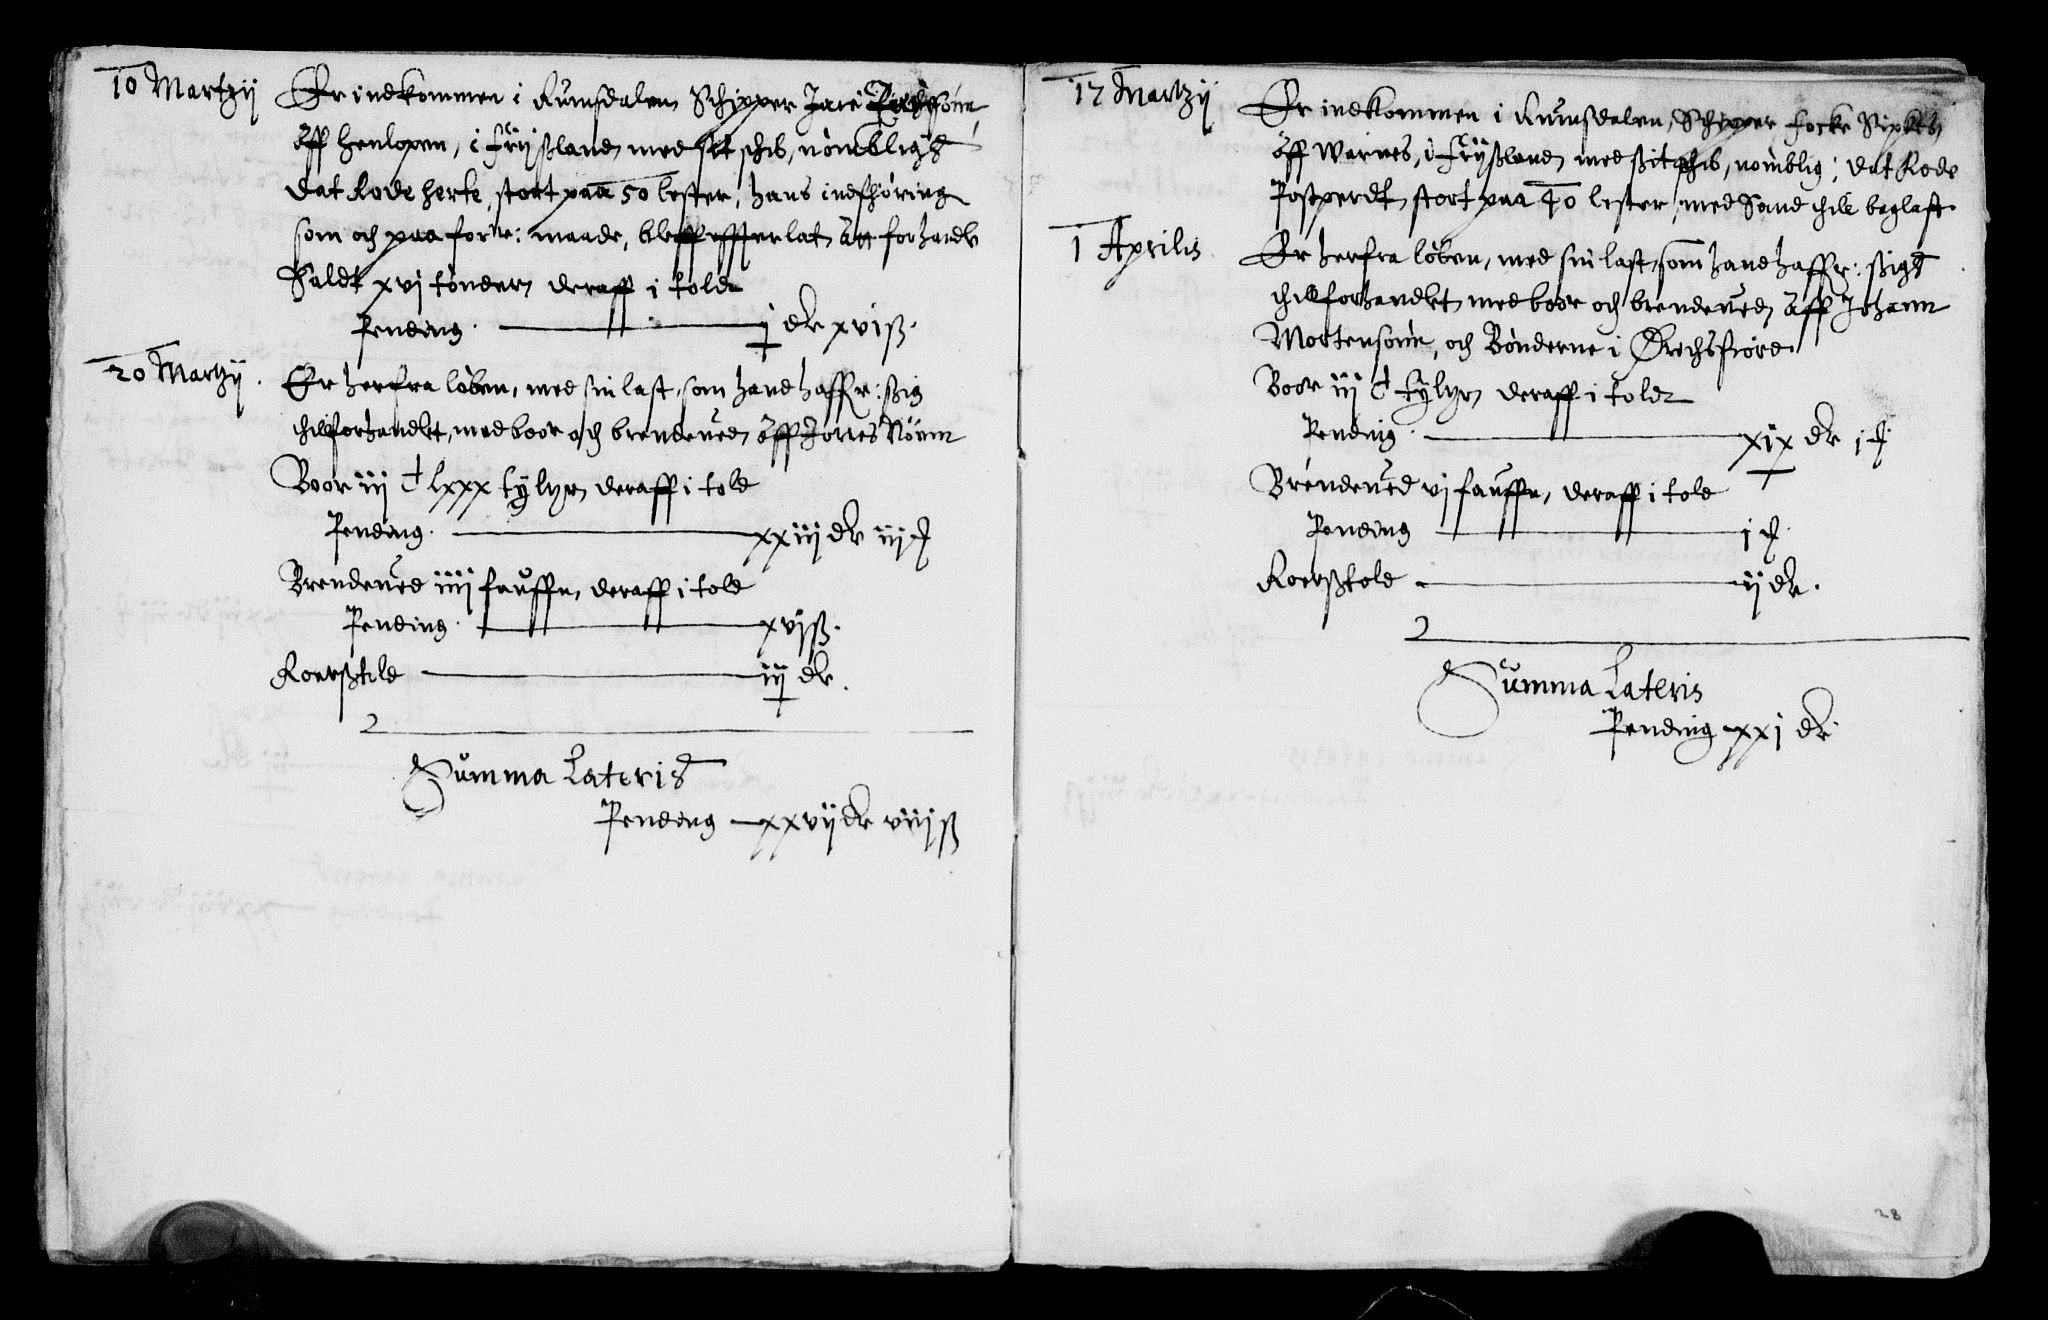 10 Martzij
Er indkommen i Rumsdalen, Schipper Jarē
Aff henlopen, i Frijßland, med sit schib, nómbligs
dat Rode herte, stort paa 50 lester, hans indfhøring
som och paa forn: maade, bleff effterlat att forhandle
Saldt xvj tønder, deraff i told
Pending. j dlr xvj ß.
20 Martzij.
Er herfra løben, med sin last, som hand haffr: ßig
thilforhandlet, med boor och brendeued, Aff Jorres
Boor iij C lxxx tÿlter, deraff i told
Pending. xxiij dlr iij
Brendeued iiij fauffn, deraff i told
Pending. xvj ß.
Roerßtold iij dlr.
Summa Lateris
Pending xxvij dlr viij ß
17 Martzij
Er indkommen i Rumsdalen, Schipper Focke
Aff Warnes, i Frÿßland, med ßit schib, nómblig: dat Rode
Postperdt, stort paa 40 lester, med Sand thill baglast
1 Aprilis.
Er herfra løben, med sin last, som hand haffr: ßigs
thillforhandlet, med boor och brendeued, Aff Johann
Mortensønn, och Bønderne i Ørchsfiørd
Boor iij C tÿlter, deraff i told
Pending. xix dlr j
Brendeued vj fauffn, deraff i told
Pending j
Roerßtold ij dlr.
Summa Lateris
Pending xxj dlr
28